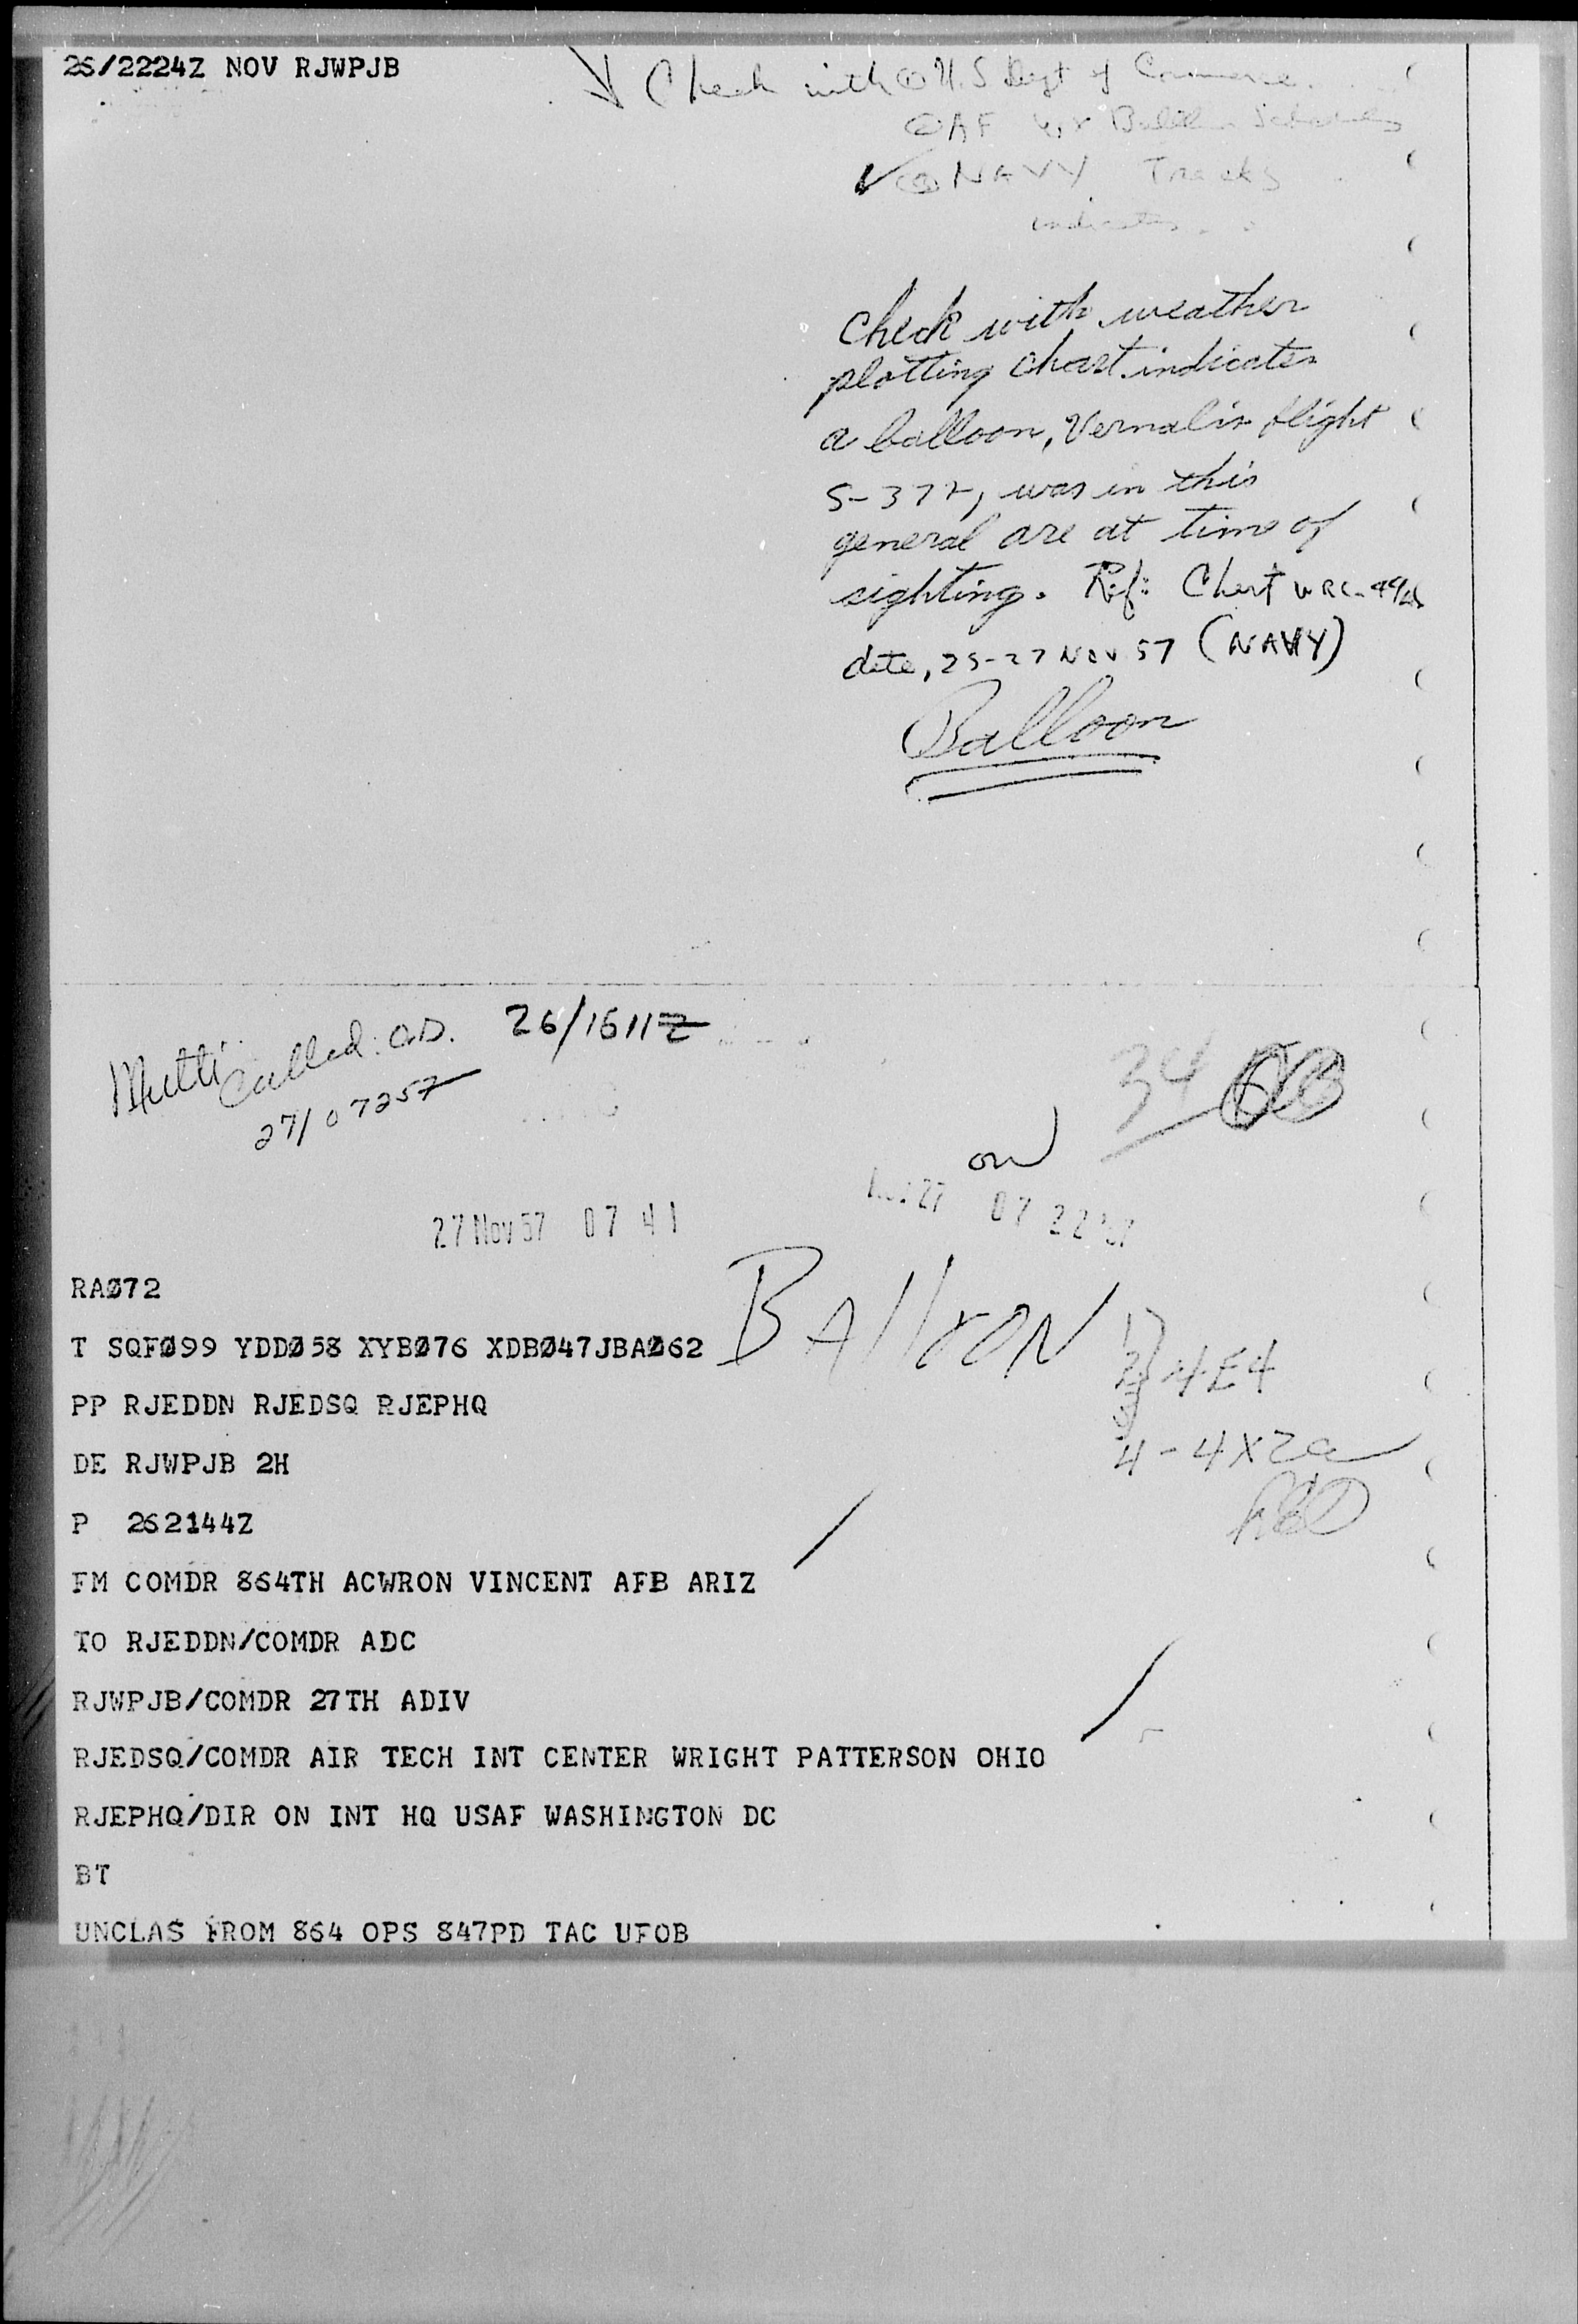 26/2224Z NOV RJWPJB
Check with ① U.S Dept of Commerce
② AF Balloon Schedules
✓ ③ NAVY Tracks
indicates
Check with weather
plotting chart indicates
a balloon, Vernalis flight
S-377, was in this
general are at time of
sighting. Ref: Chart WRC-
date, 25-27 NOV 57 (NAVY)
Balloon
Multi Called: O.D. 26/1611Z
27/0725Z
34
27 Nov 57 07 41
27 07 22 '57
RAØ72
BAllOON
T SQFØ99 YDDØ58 XYBØ76 XDBØ47JBAØ62
4E4
PP RJEDDN RJEDSQ RJEPHQ
4-4X2a
DE RJWPJB 2H
P 262144Z
FM COMDR 864TH ACWRON VINCENT AFB ARIZ
TO RJEDDN/COMDR ADC
RJWPJB/COMDR 27TH ADIV
RJEDSQ/COMDR AIR TECH INT CENTER WRIGHT PATTERSON OHIO
RJEPHQ/DIR ON INT HQ USAF WASHINGTON DC
BT
UNCLAS FROM 864 OPS 847PD TAC UFOB